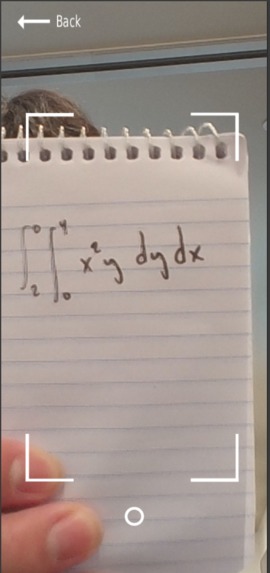 Back
∫₂⁰ ∫₀⁴ x²y dy dx